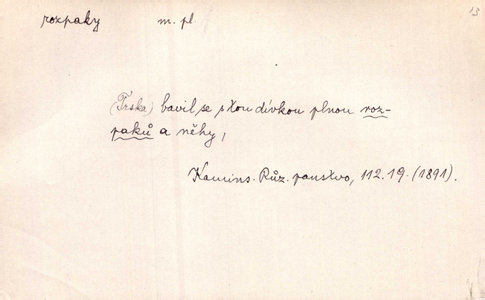 rozpaky m. pl. 13
(Trska) bavil se s tou dívkou plnou roz-
paků a něhy,
Kamins. Růz. panstvo, 112.19. (1891).